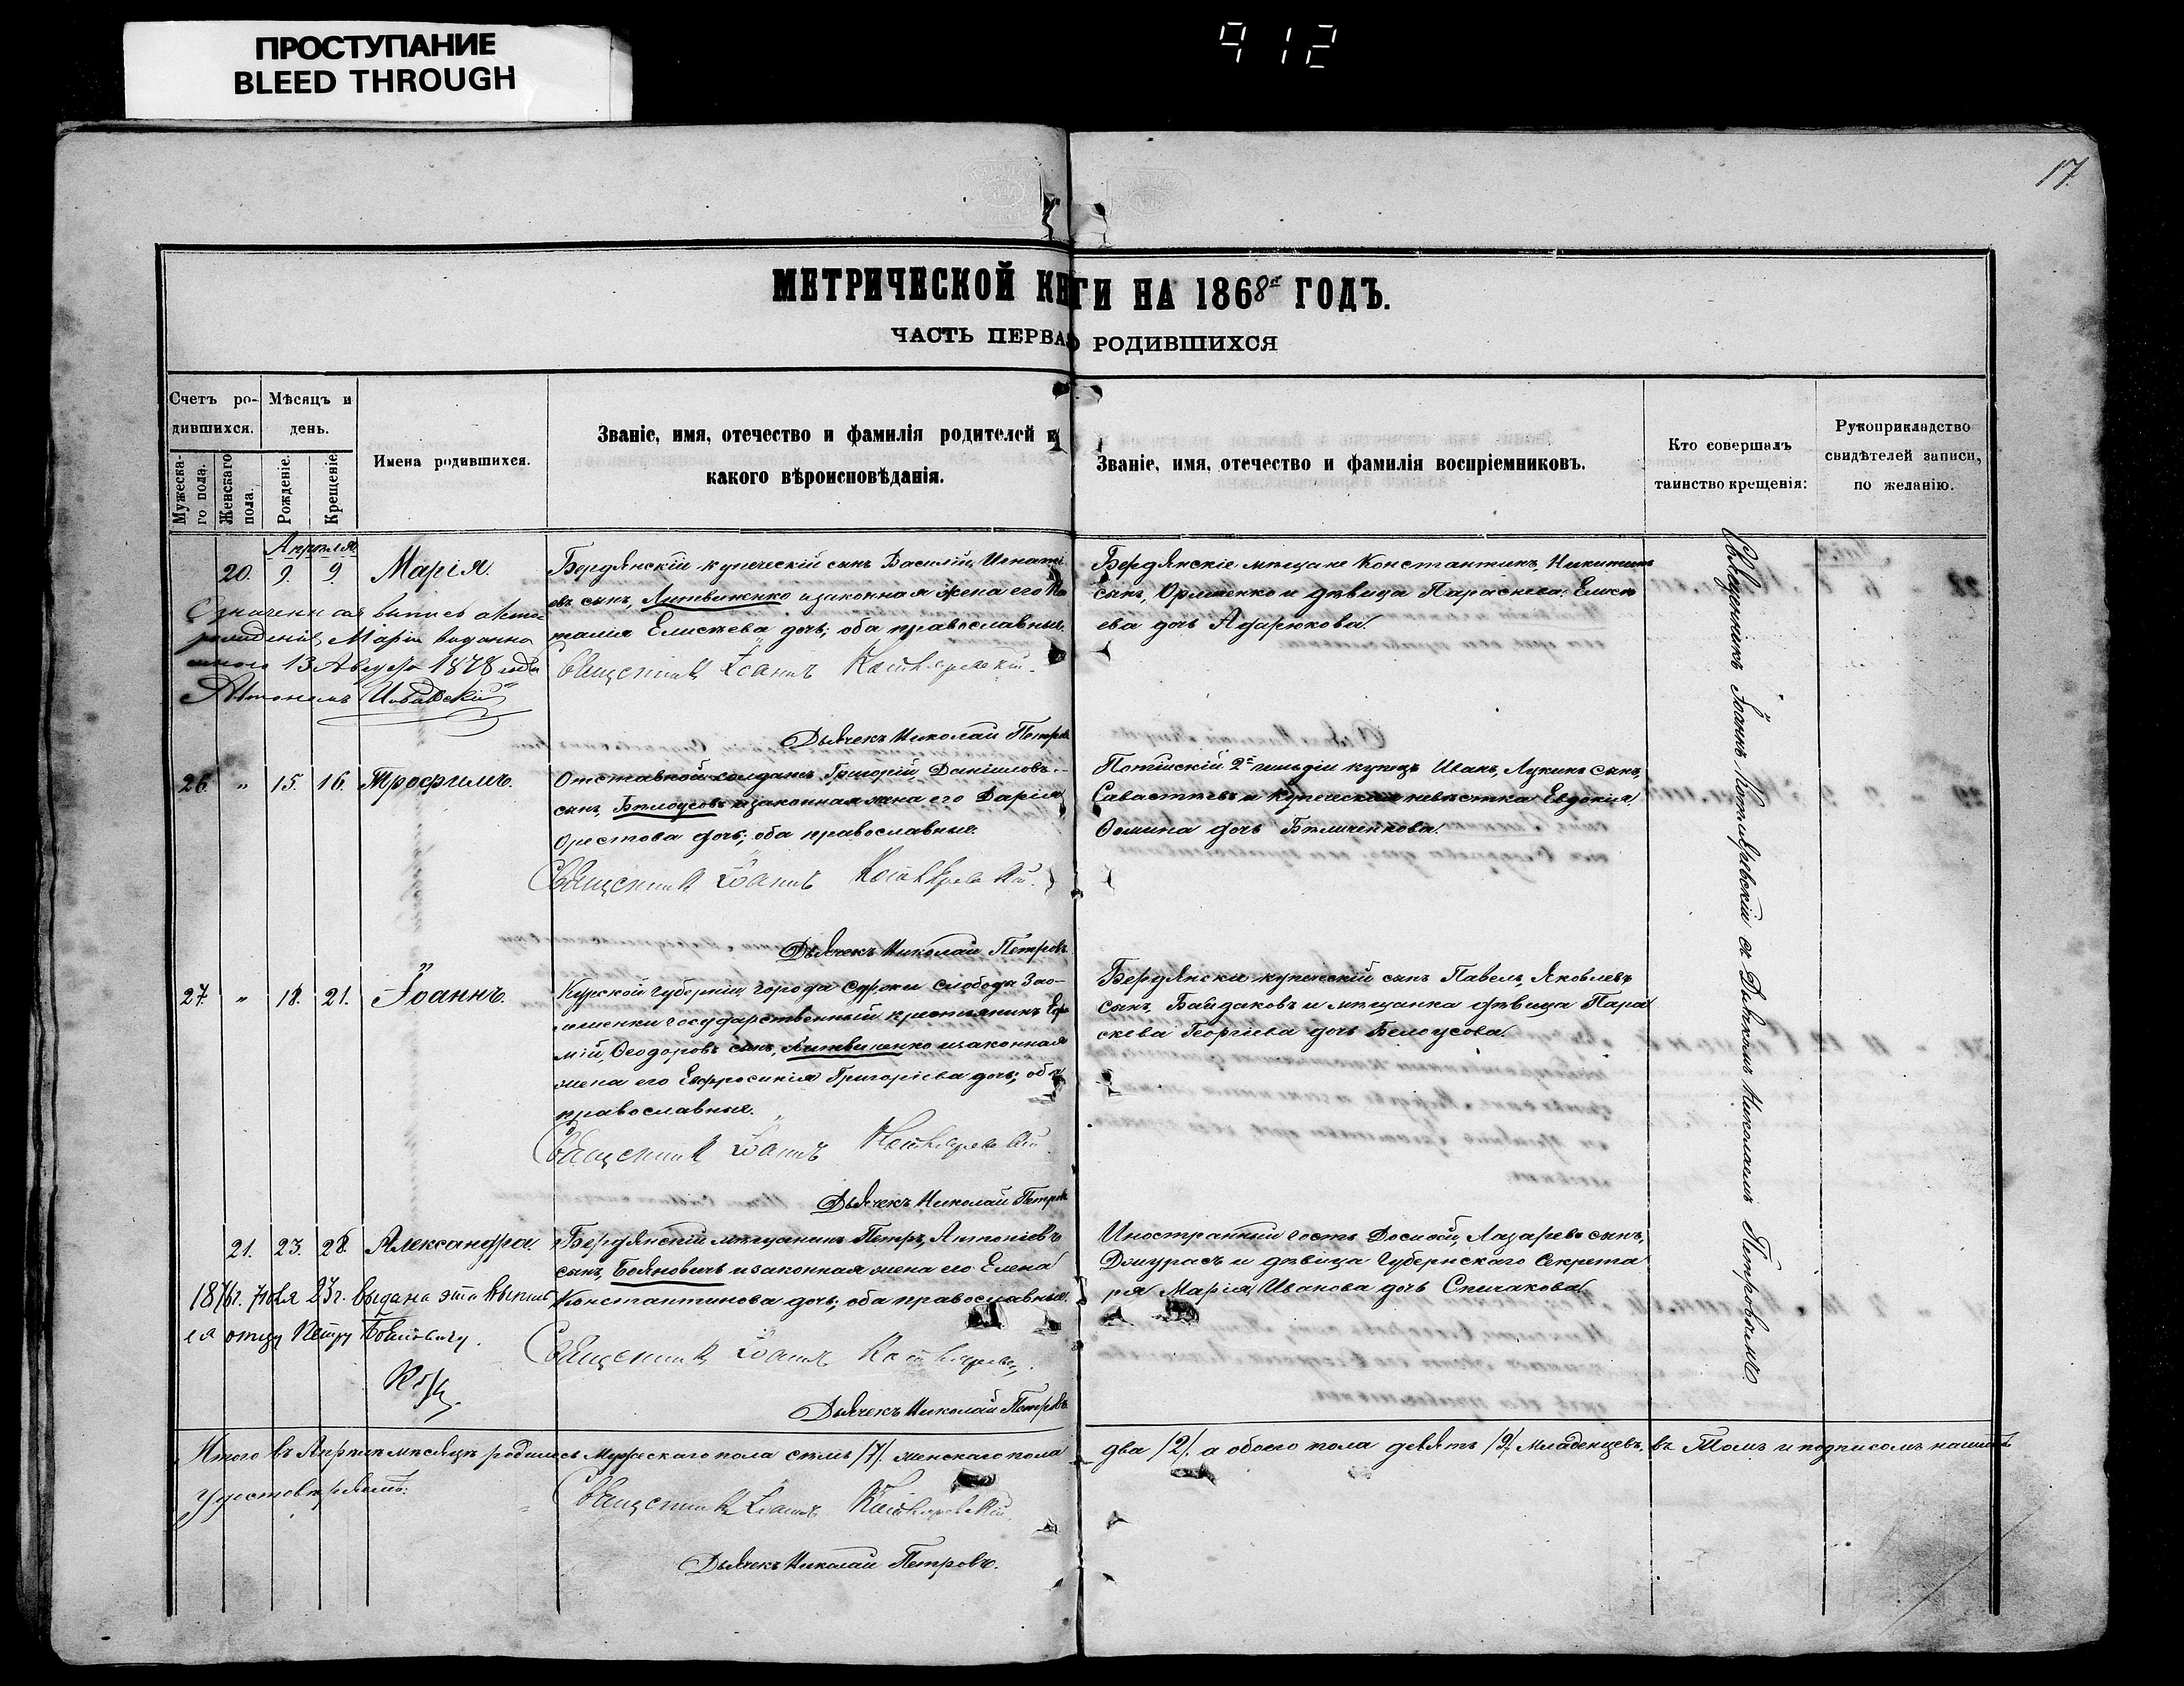 ПРОСТУПАНИЕ
BLEED THROUGH
912
17.
МЕТРИЧЕСКОЙ КНИГИ НА 1868й ГОДЪ.
ЧАСТЬ ПЕРВАЯ О РОДИВШИХСЯ
Счетъ ро-
дившихся.
Мужеска-
го пола.
Женскаго
пола.
Мѣсяцъ и
день.
Рожденіе.
Крещеніе.
Имена родившихся.
Званіе, имя, отечество и фамилія родителей и
какого вѣроисповѣданія.
Званіе, имя, отечество и фамилія воспріемниковъ.
Кто совершалъ
таинство крещенія:
Рукоприкладство
свидѣтелей записи,
по желанію.
Апрѣля
20. 9. 9. Марія.
Бердянскій купеческій сынъ Василій Игнаті
евъ сынъ, Литвиненко и законная жена его На
талія Елисеева дочь; оба православные.
Священникъ Іоаннъ Котляревскій.
Дьячекъ Николай Петровъ
Бердянскіе мѣщане Константинъ Никитинъ
сынъ, и дѣвица Параскева Елисѣ
ева дочь Адарюкова.
Означенная выпись
рожденіи Маріи выдана
13 Августа 1878 года
26. " 15. 16. Трофимъ.
Отставной солдатъ Григорій Даніиловъ
сынъ, Бѣлоусовъ и законная жена его Дарія
Орестова дочь; оба православные.
Священникъ Іоаннъ Котляревскій.
Дьячекъ Николай Петровъ
2й гильдіи купецъ Иванъ Лукинъ сынъ,
Савастьевъ и купеческая невѣстка Евдокія
Ѳомина дочь Бѣличенкова.
27. " 18. 21. Іоаннъ.
Курской Губерніи города Суджи слободы Зао-
лешенки государственный крестьянинъ Еѳи
мій Ѳеодоровъ сынъ, Литвиненко и законная
жена его Евфросинія Григоріева дочь; оба
православные.
Священникъ Іоаннъ Котляревскій
Дьячекъ Николай Петровъ
Бердянскій купеческій сынъ Павелъ Яковлевъ
сынъ, Байдаковъ и мѣщанка дѣвица Пара
скева Георгіева дочь Белоусова.
21. 23. 28. Александра.
Бердянскій мѣщанинъ Петръ Антоніевъ
сынъ, Бояновичъ и законная жена его Елена
Константинова дочь; оба православные.
Священникъ Іоаннъ Котляревскій.
Дьячекъ Николай Петровъ
Иностранный гость Досифей Лазаревъ сынъ,
и дѣвица Губернскаго Секрета
ря Марія Иванова дочь Спичакова.
23г. выдана эта выпись
ея отцу Петру Бояновичу.
Священникъ Іоаннъ Котляревскій съ Дьячкомъ Николаемъ Петровымъ.
Итого въ Апрѣлѣ мѣсяцѣ родилось Мужескаго пола семь /7/. женскаго пола два /2/. а обоего пола девять /9/. Младенцевъ, въ томъ и подписомъ нашимъ
удостовѣряемъ:
Священникъ Іоаннъ Котляревскій.
Дьячекъ Николай Петровъ.